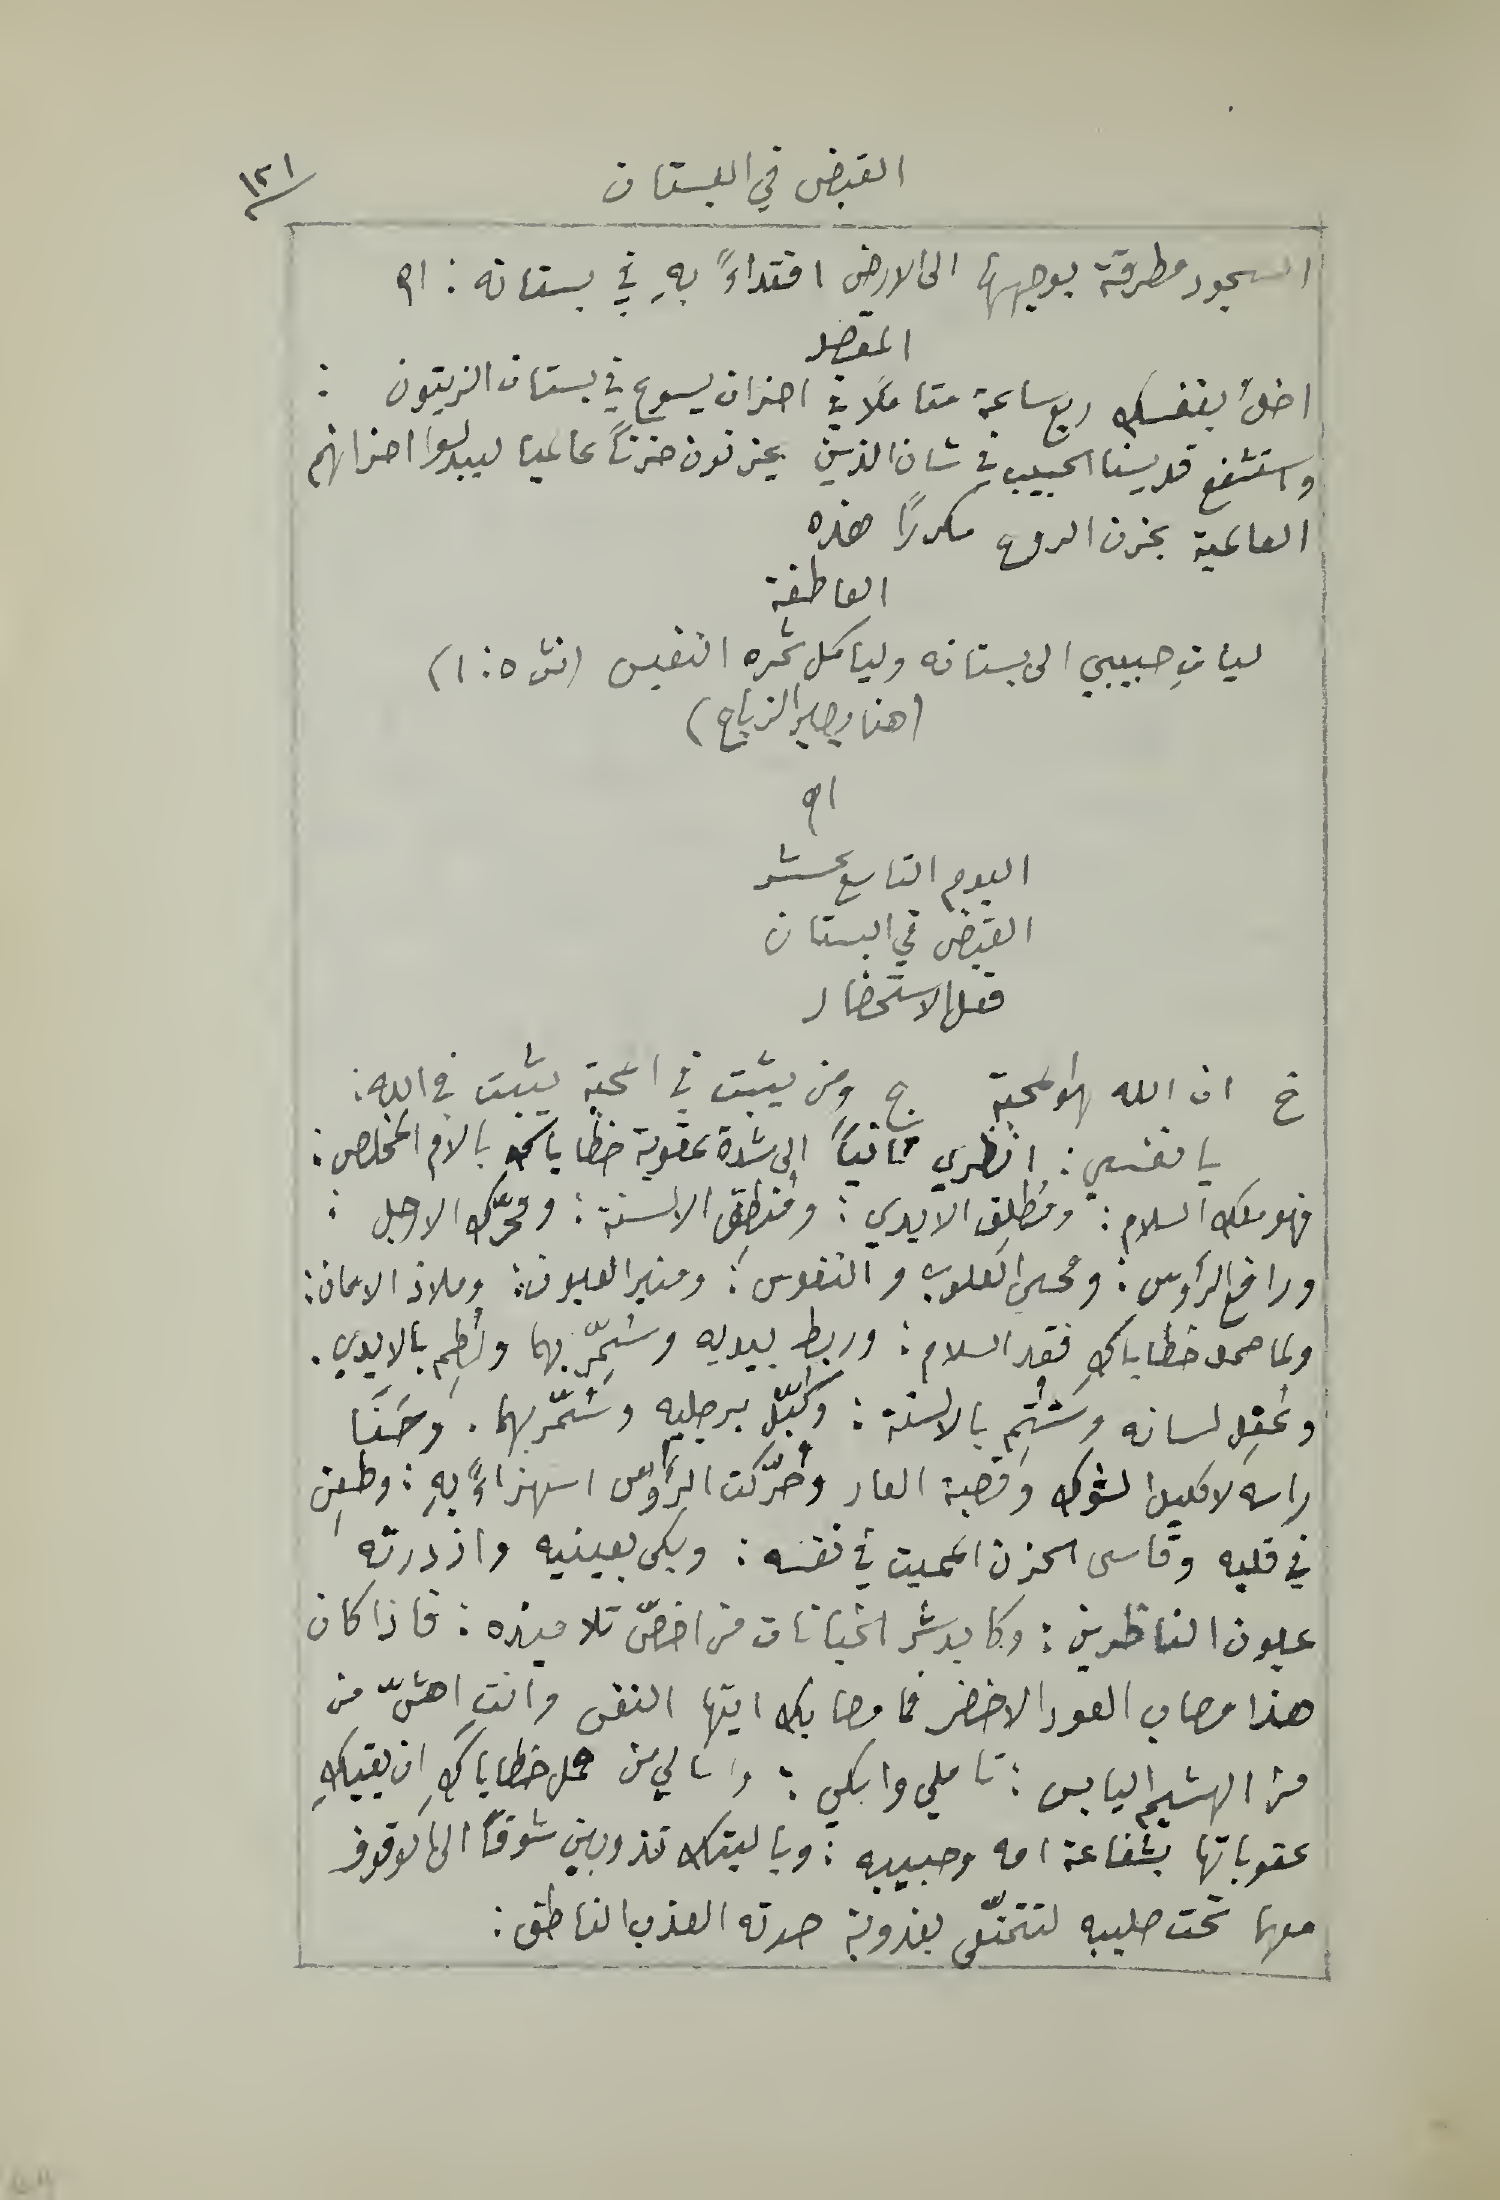 القبض في البستان
١٢١
السجود مطرقة بوجهها الى الارض اقتداءً بهِ في بستانه : اه
المقصد
اخلُ بنفسك ربع ساعة متاملًا في احزان يسوع في بستان الزيتون :
واستشفع قديسنا الحبيب في شان الذين يحزنون حزنًا عالميا ليبدلوا احزانهم
العالمية بحزن الروح مكررًا هذه
العاطفة
ليأتِ حبيبي الى بستانه وليأكل ثمره النفيس (نش ٥ : ١)
(هنا يصير الزياح)
اه
اليوم التاسع عشر
القبض في البستان
فعل الاستحضار
خ ان الله هو المحبة ج ومن يثبت في المحبة يثبت في الله :
يا نفسي : انظري ثانيًا الى شدة عقوبة خطاياكِ بالام المخلص :
فهو ملك السلام : ومُطلِق الايدي : ومُنطِق الالسنة : ومحرّك الارجل :
ورافع الرؤس : ومحيي القلوب والنفوس : ومنير العيون : وملاذ الايمان :
ولما حمل خطاياكِ فقد السلام : وربط بيديه وسُمِّر بهما ولُطِم بالايدي .
وعُقِل لسانه وشُتِم بالالسنة : وكُبِّل برجليه وسُمّر بهما . وحَنَا
راسه لاكليل الشوك وقصبة العار وحُرّكت الرؤس استهزاءً بهِ : وطُعِن
في قلبه وقاسى الحزن المميت في نفسه : وبكى بعينيه وازدرته
عيون الناظرين : وكابد شر الخيانات من اخصّ تلاميذه : فاذا كان
هذا مصاب العود الاخضر فما مصابك ايتها النفس وانتِ اهشّ من
من الهشيم اليابس : تاملي وابكي : واسالي من حمل خطاياكِ ان يقيكِ
عقوباتها بشفاعة امه وحبيبه : ويا ليتك تذوبين شوقًا الى الوقوف
معها تحت صليبه لتتمتّعي بعذوبة صوته العذب الناطق :